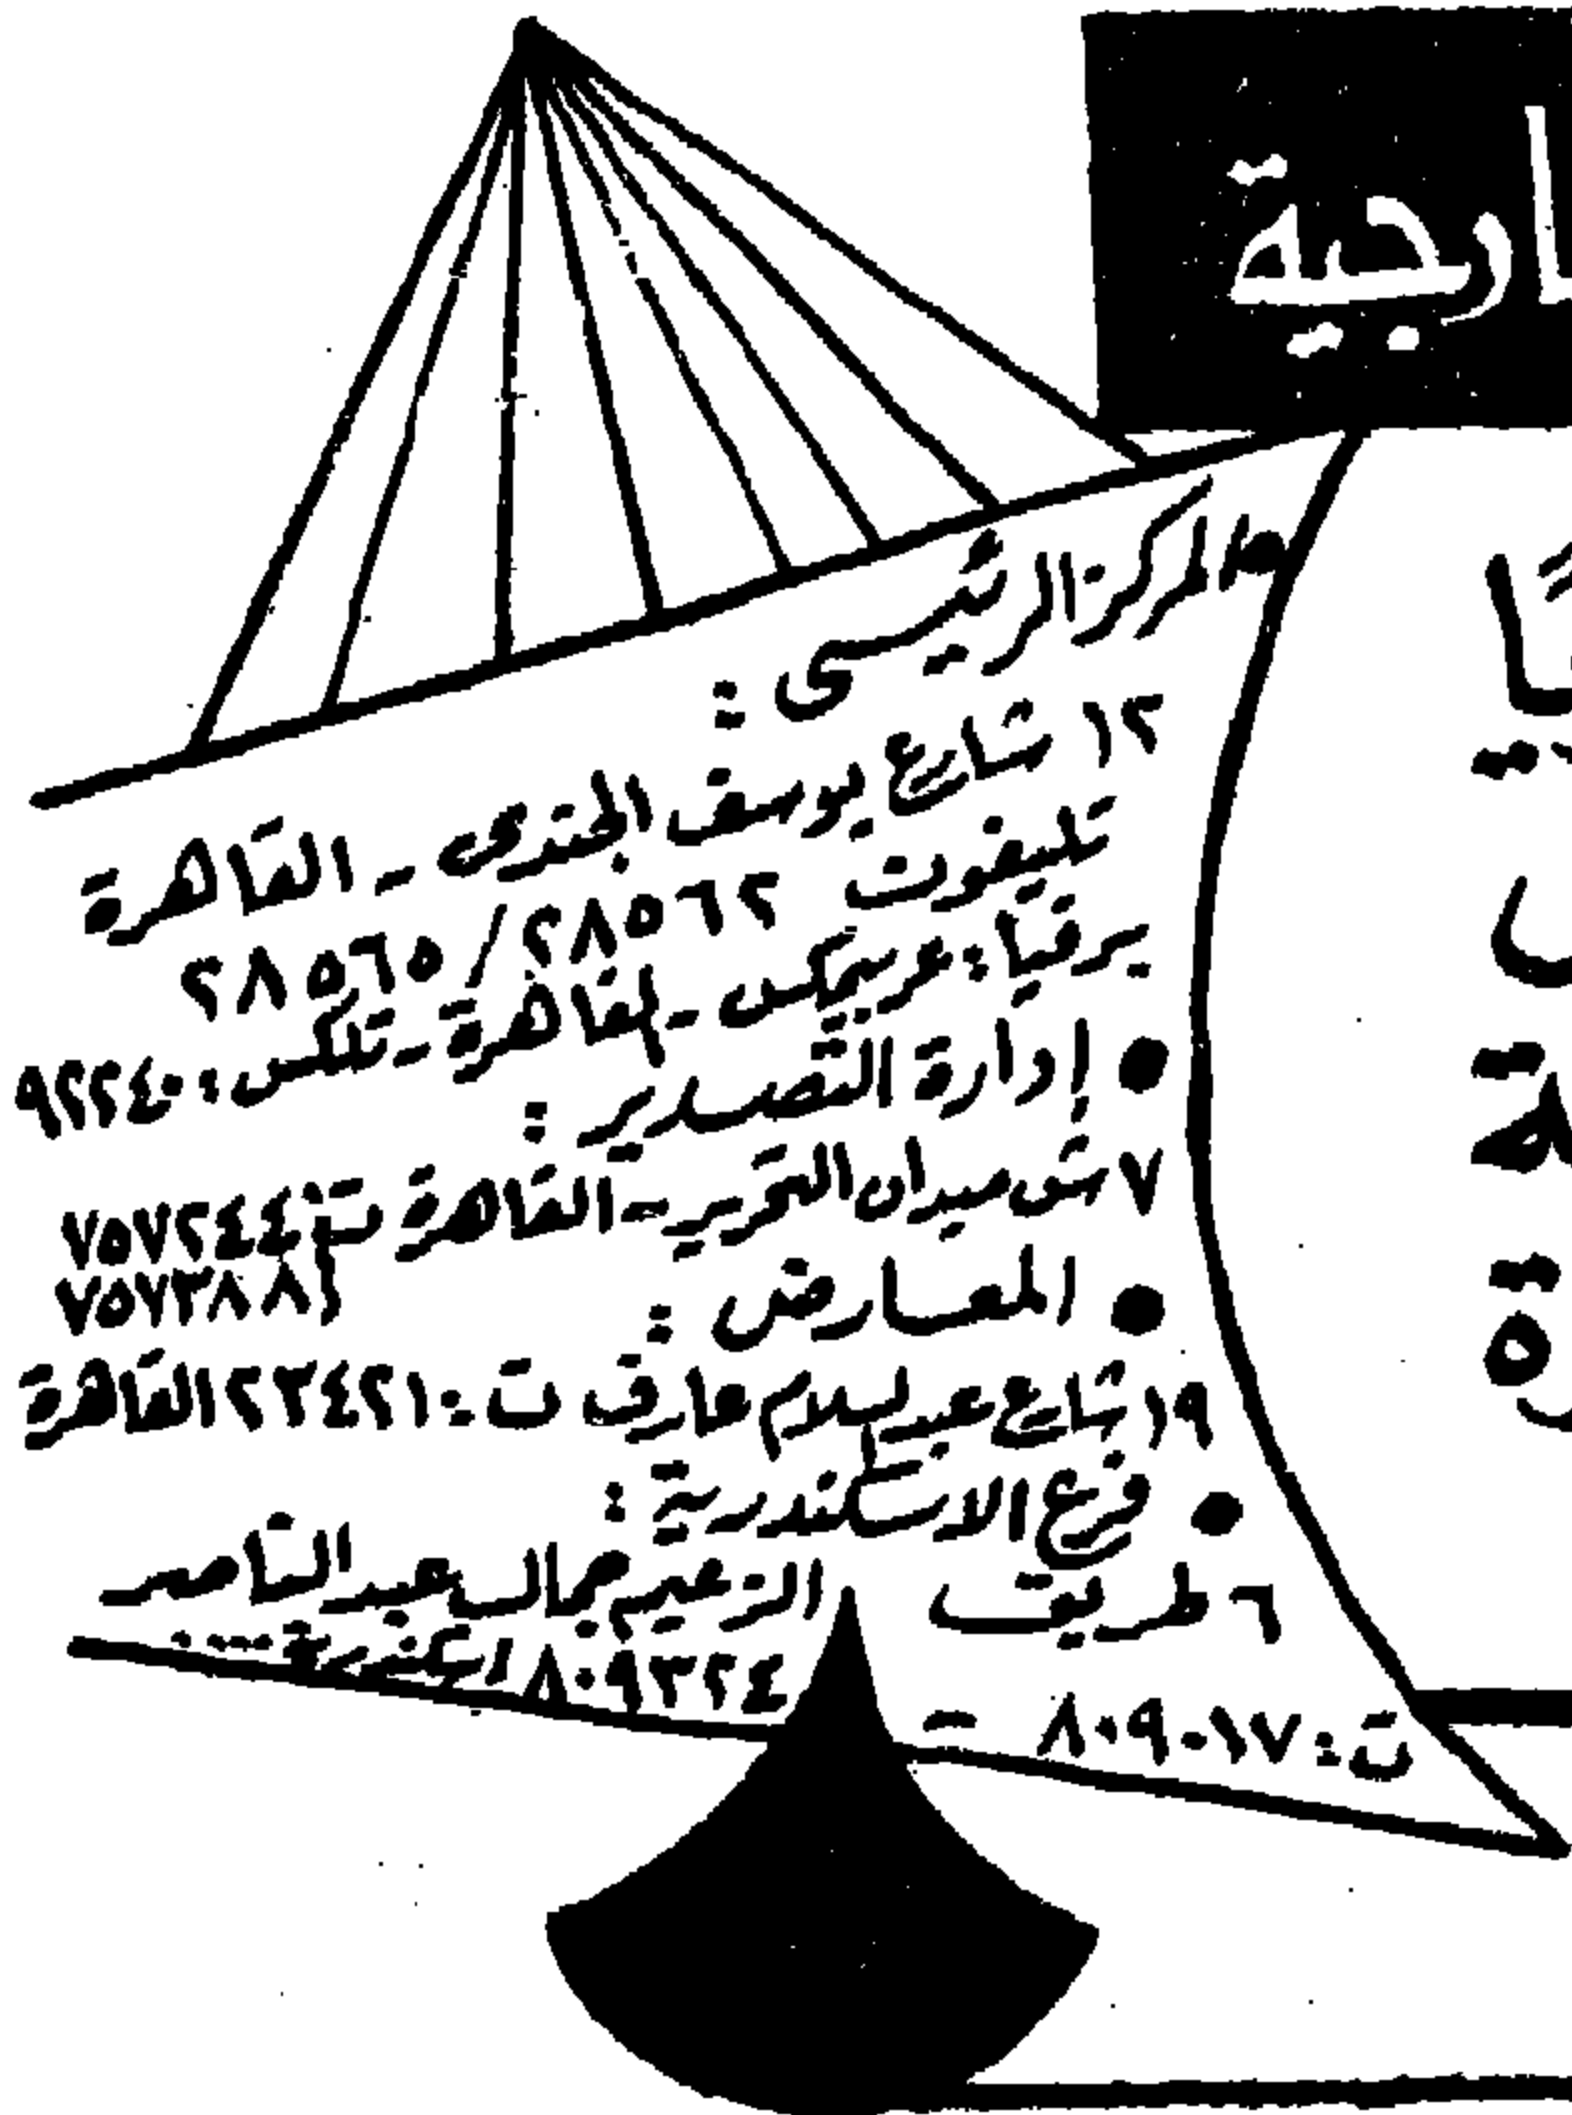 المركز الرئيسى :
١٢ شارع يوسف الجندى - القاهرة
تليفون ٢٨٥٦٢ / ٢٨٥٦٥
برقيا : عربيمكس - القاهرة - تلكس : ٩٢٢٤٠
● إدارة التصدير :
٧ ش ميدان التحرير - القاهرة ت : ٧٥٧٢٤٤
٧٥٧٣٨٨
● المعارض :
١٩ شارع عبد السلام عارف ت : ٢٢٤٢١ القاهرة
● فرع الاسكندرية :
٦ طريق الزعيم جمال عبد الناصر
ت : ٨٠٩٠١٧ - ٨٠٩٣٢٤